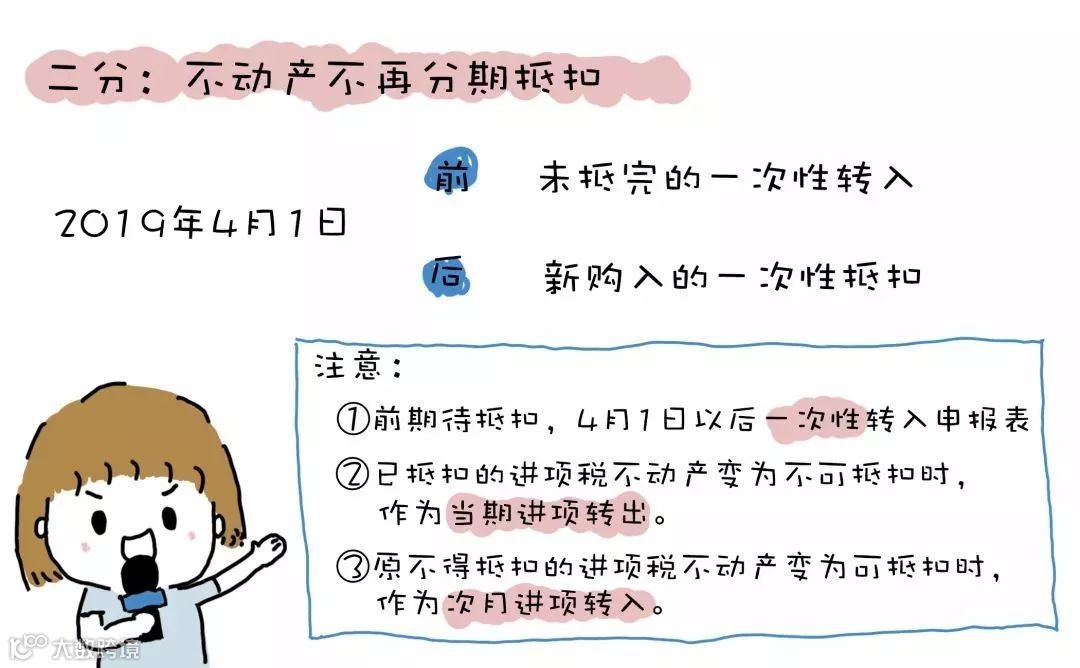 二分：不动产不再分期抵扣
前 未抵完的一次性转入
2019年4月1日
后 新购入的一次性抵扣
注意：
①前期待抵扣，4月1日以后一次性转入申报表
②已抵扣的进项税不动产变为不可抵扣时，
作为当期进项转出。
③原不得抵扣的进项税不动产变为可抵扣时，
作为次月进项转入。
大数跨境